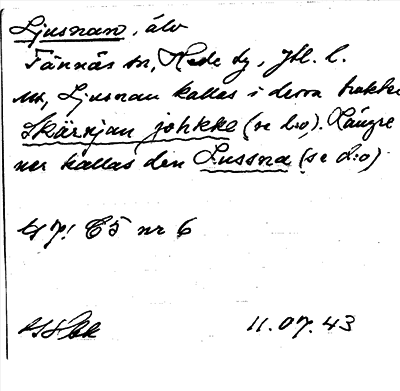 Ljusnan, älv
Tännäs sn, Hede tg, Jtl. l.
Ljusnan kallas i dessa trakter
Skärnjan johkke (se d:o). Längre
ner kallas den Lussna (se d:o)
C5 nr 6
11.07.43